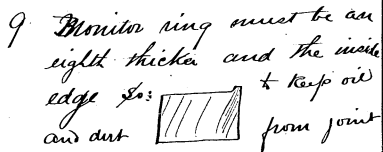 9 Monitor ring must be an
eighth thicker and the inside
edge so: to keep oil
and dirt from joint